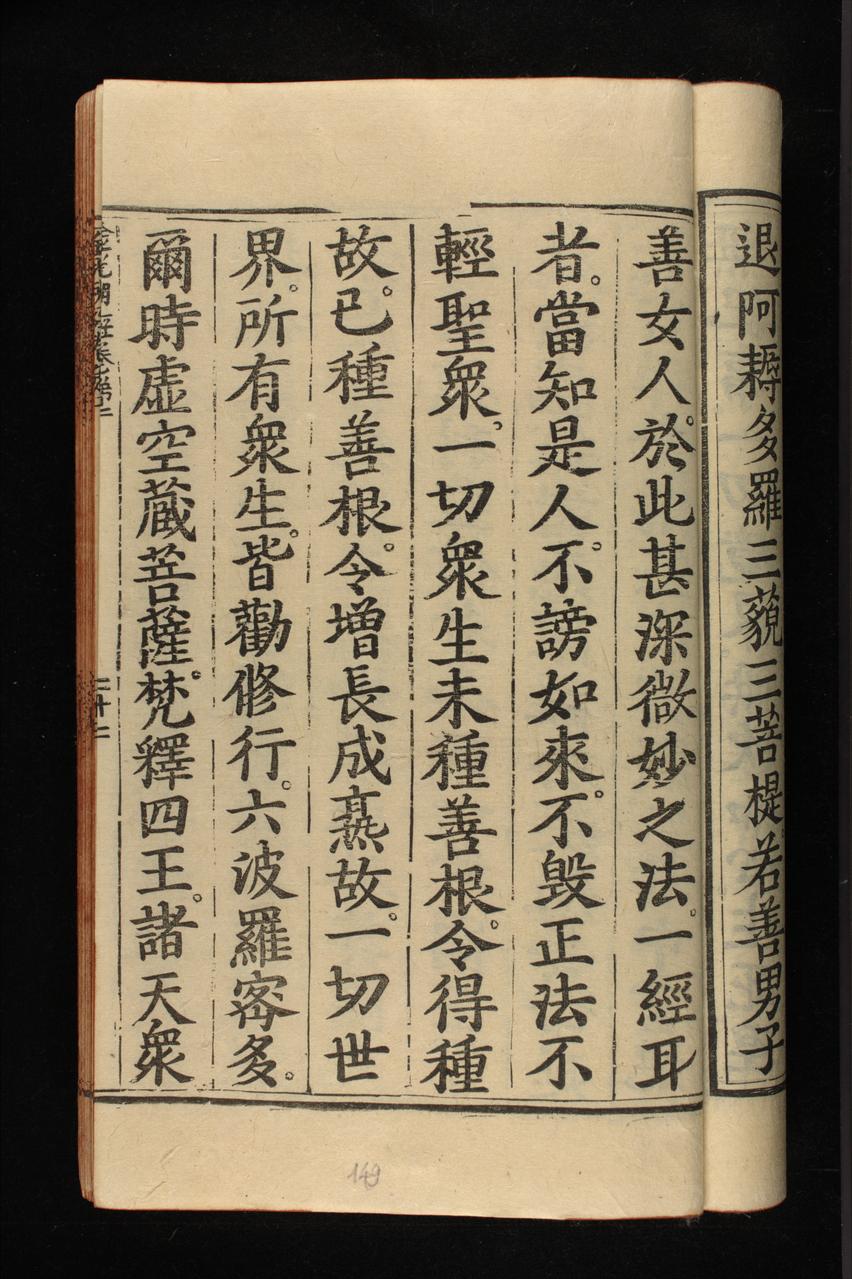 退阿耨多羅三藐三菩提若善男子
善女人。於此甚深微妙之法。一經耳
者。當知是人。不謗如來。不毀正法不
輕聖衆。一切衆生未種善根。令得種
故。已種善根。令增長成熟故。一切世
界。所有衆生。皆勸修行。六波羅密多。
爾時虛空藏菩薩。梵釋四王。諸天衆
二十二
149